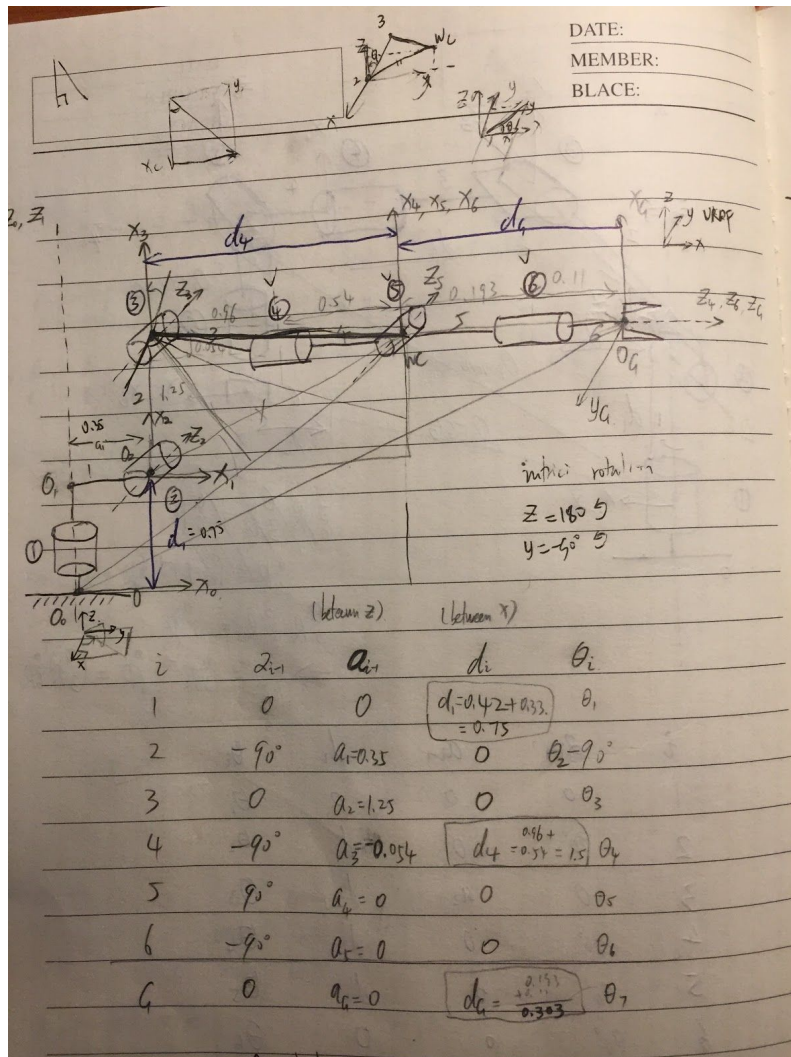 DATE:
MEMBER:
BLACE:
3
Z
WC
2
y
x
Z
y
y
x
y
xc
Z
y URDF
x
z₀, z₁
x₃
x₄, x₅, x₆
x_G
d₄
d_G
③
z₃
④
⑤
z₅
⑥
0.96
0.54
0.193
0.11
3
4
5
6
z₄, z₆, z_G
0.054
WC
O_G
y_G
2
1.25
x₂
0.35
a₁
O₂
z₂
O₁
1
x₁
②
d₁ = 0.75
①
x₀
O₀
0
z
y
x
intrici rotation
Z = 180°
y = -90°
(between Z)
(between X)
i α_{i-1} a_{i-1} d_i θ_i
1 0 0 d₁=0.42+0.33 = 0.75 θ₁
2 -90° a₁=0.35 0 θ₂-90°
3 0 a₂=1.25 0 θ₃
4 -90° a₃=-0.054 d₄ = 0.96+0.54 = 1.5 θ₄
5 90° a₄=0 0 θ₅
6 -90° a₅=0 0 θ₆
G 0 a₆=0 d_G = 0.193 + 0.11 0.303 θ₇